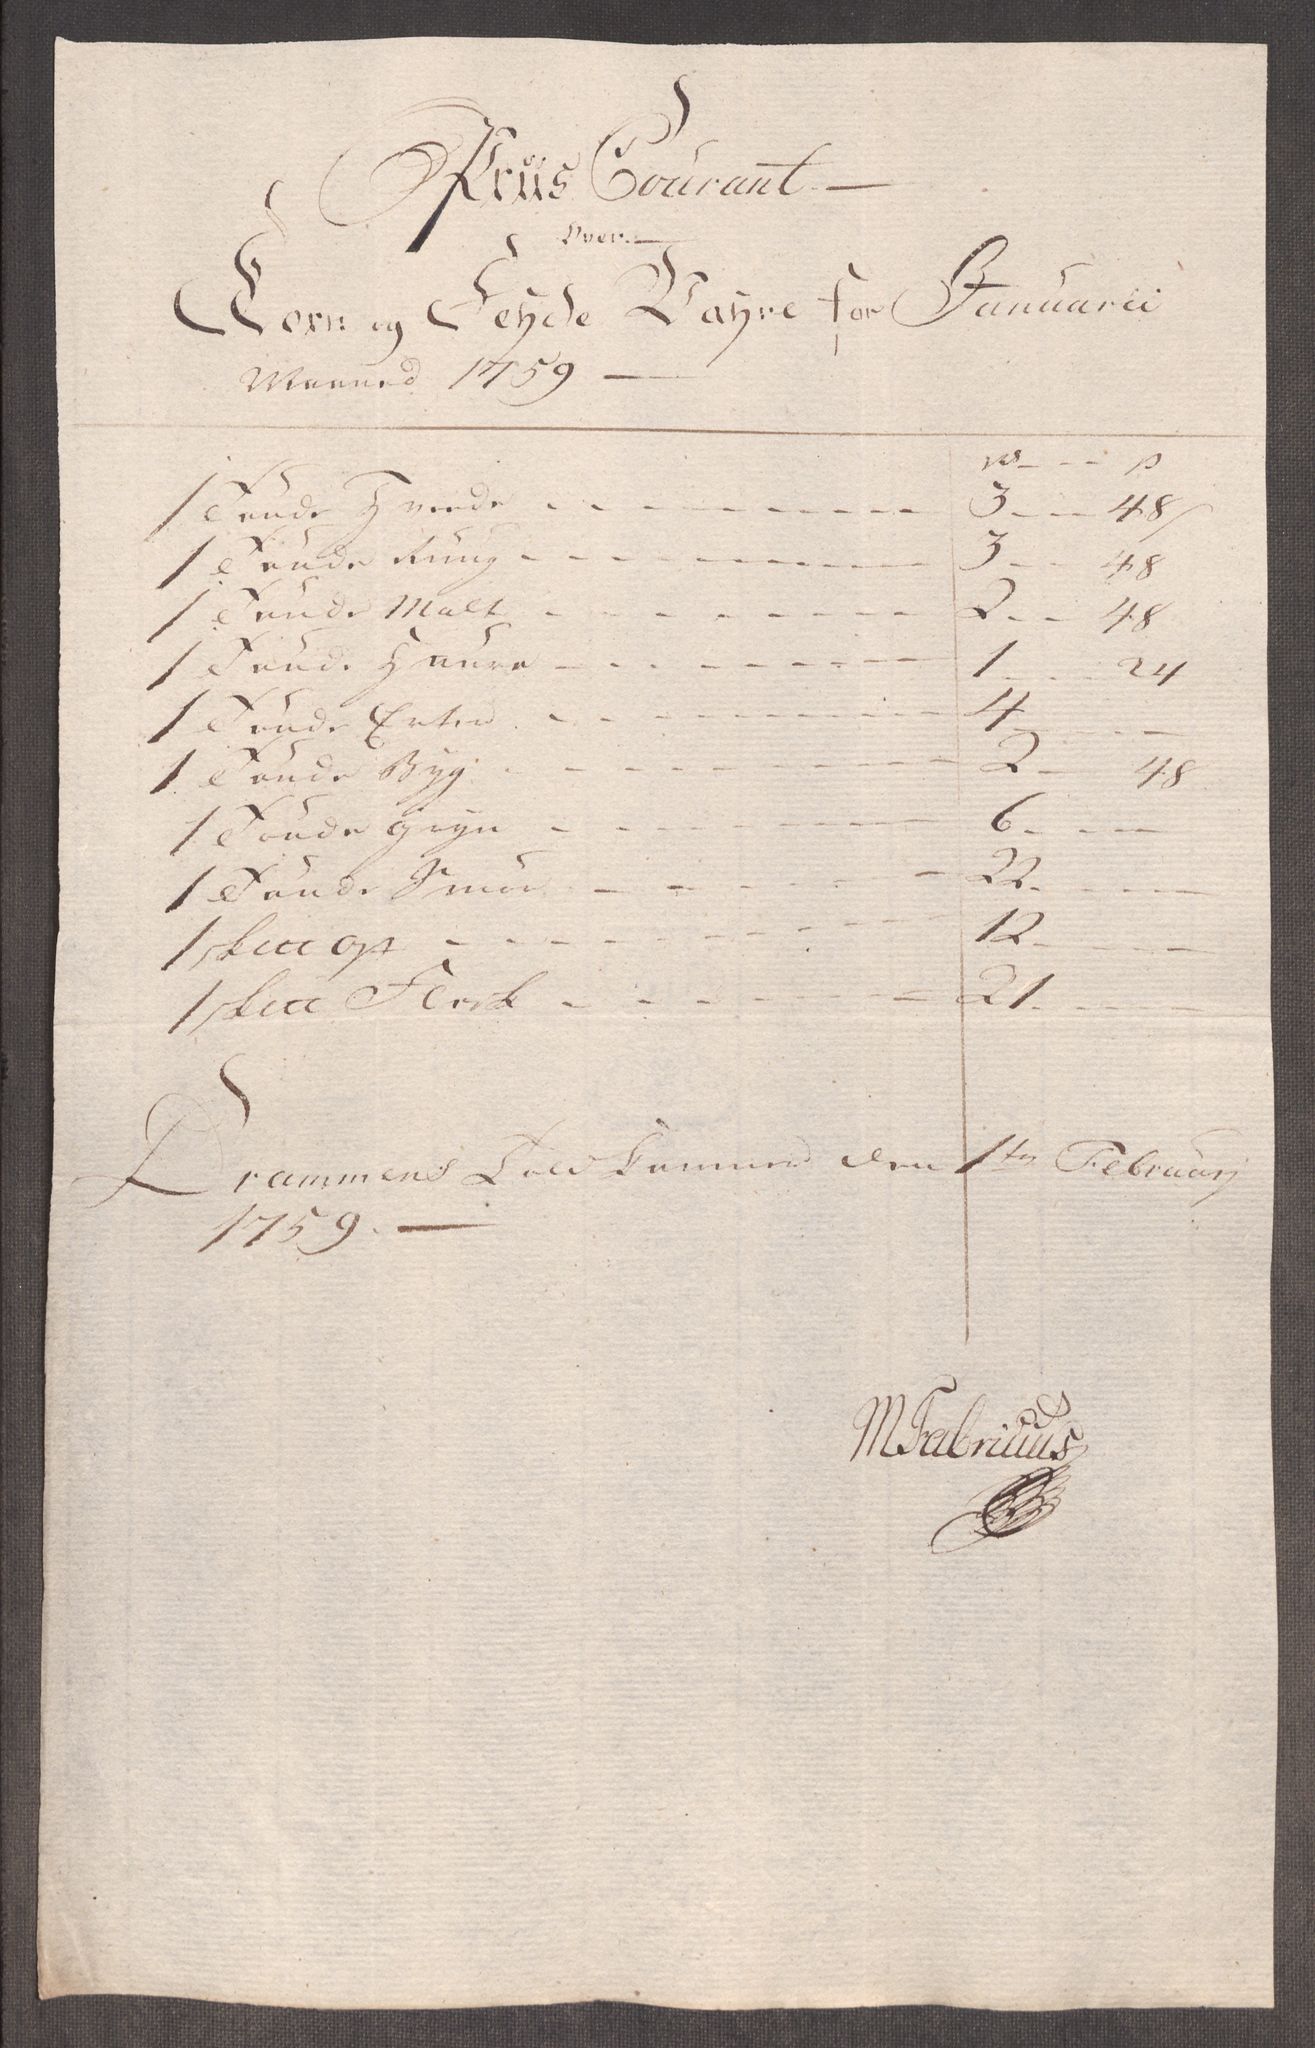 Priis Courant
Over
Korn og Fehde Vahre for Januarii
Maaned 1759
rd ß
1 Tønde Hvede 3 48
1 Tønde Rüug 3 48
1 Tønde Malt 2 48
1 Tønde Haure 1 24
1 Tønde Erter 4
1 Tønde Byg 2 48
1 Tønde Gryn 6
1 Tønde Smør 22
1 12
1 Flesk 21
Drammens Told Kammer den 1te Februarj
1759
MFabricius